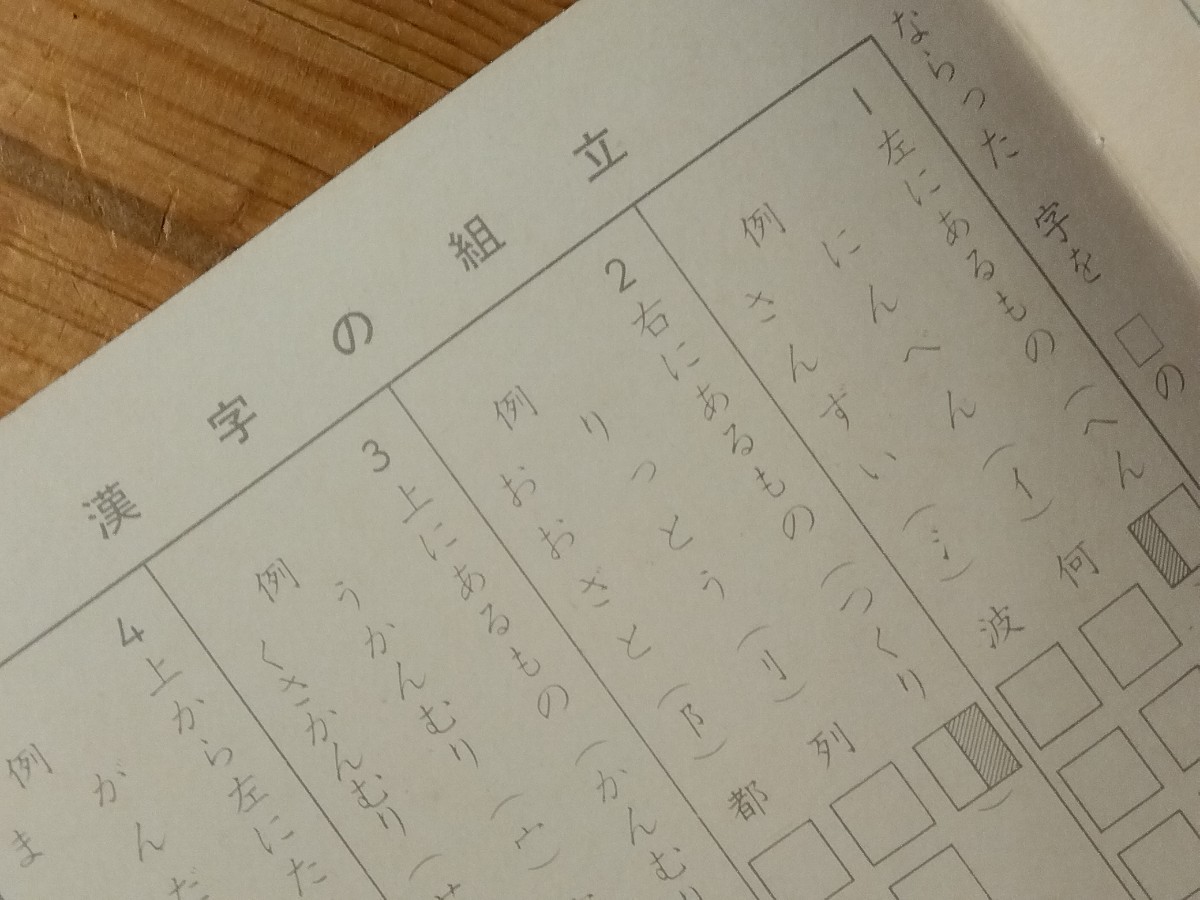 ならった 字を □の
漢字の組立
1 左にあるもの（へん
例 にんべん（亻） 何
さんずい（氵） 波
2 右にあるもの（つくり ）
例 りっとう（刂） 列
おおざと（阝） 都
3 上にあるもの（かんむり
例 うかんむり（宀）
くさかんむり（
4 上から左にた
例 がんだ
ま